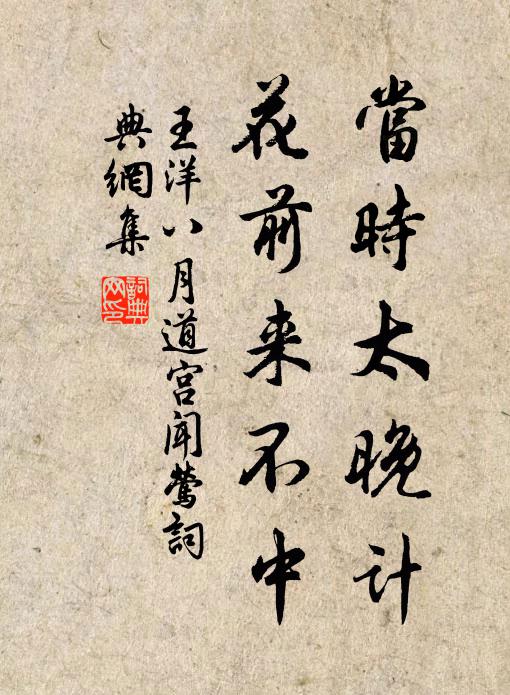 當時太晚計
花前来不中
王洋八月道宫闻莺詞
典網集
詞典
网印